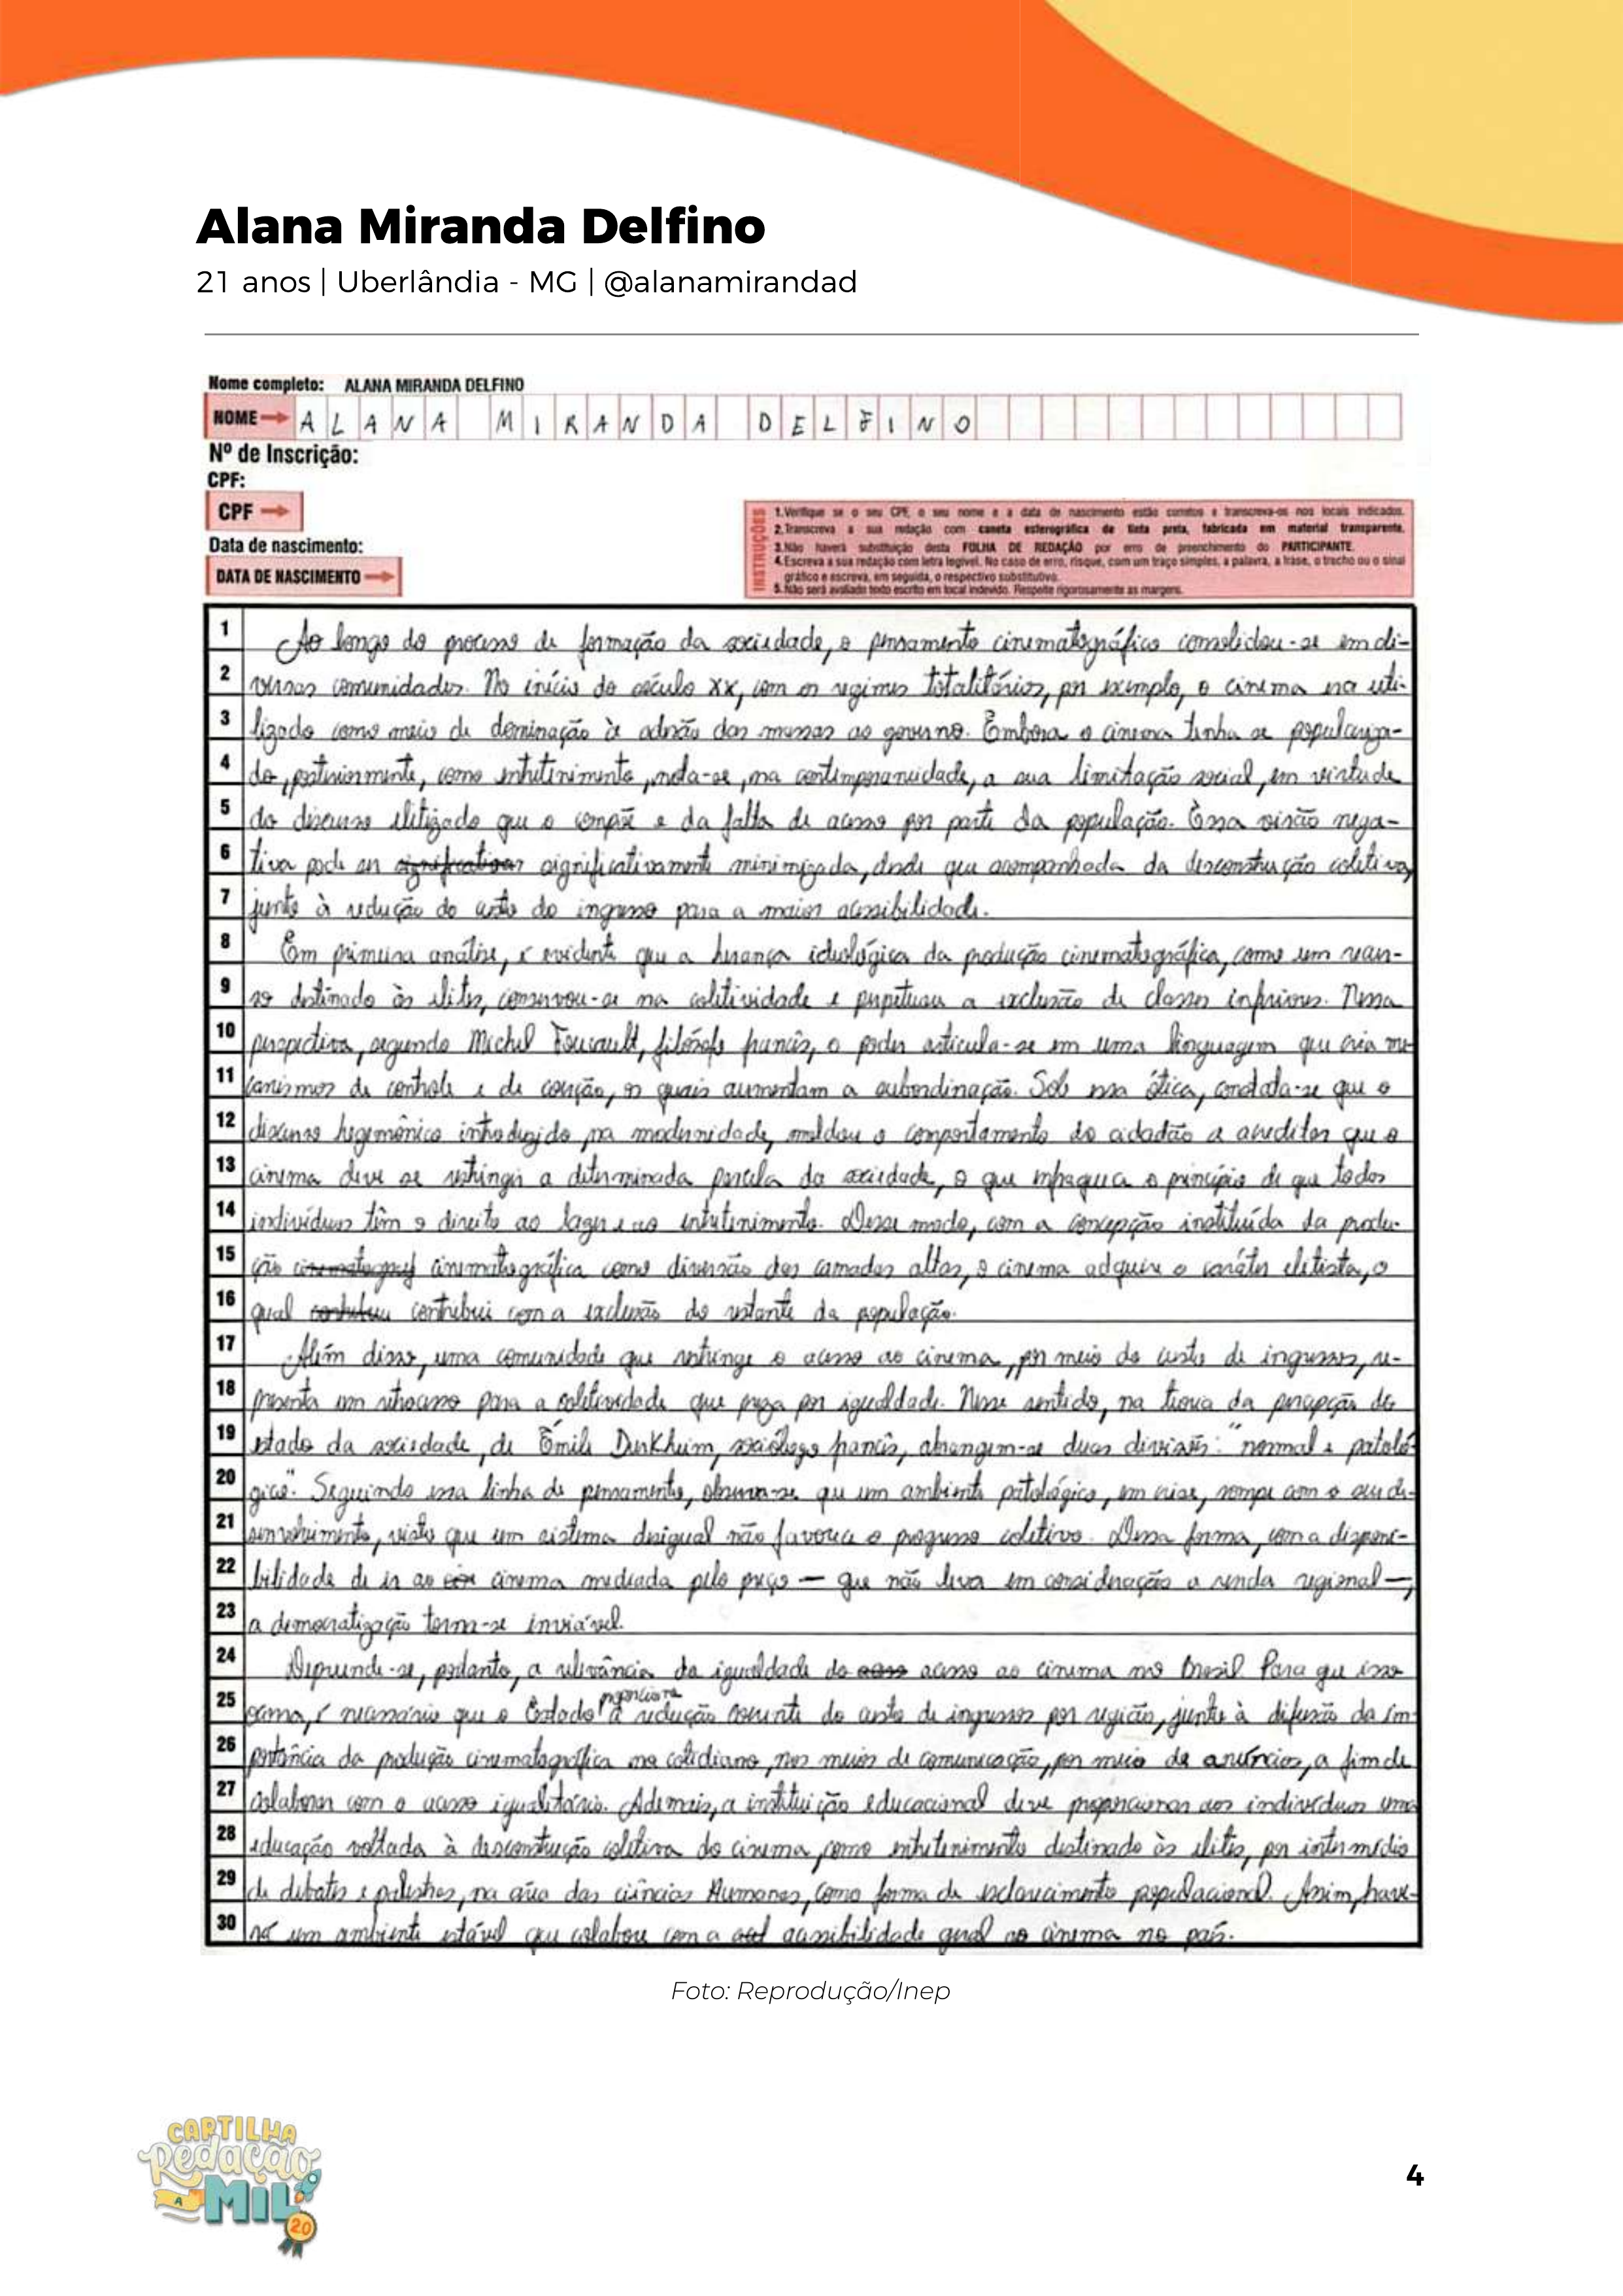 Alana Miranda Delfino
21 anos | Uberlândia - MG | @alanamirandad
Nome completo: ALANA MIRANDA DELFINO
NOME → ALANA MIRANDA DELFINO
Nº de Inscrição:
CPF:
CPF →
Data de nascimento:
DATA DE NASCIMENTO →
INSTRUÇÕES
1. Verifique se o seu CPF, o seu nome e a data de nascimento estão corretos e transcreva-os nos locais indicados.
2. Transcreva a sua redação com caneta esferográfica de tinta preta, fabricada em material transparente.
3. Não haverá substituição desta FOLHA DE REDAÇÃO por erro de preenchimento do PARTICIPANTE.
4. Escreva a sua redação com letra legível. No caso de erro, risque, com um traço simples, a palavra, a frase, o trecho ou o sinal
gráfico e escreva, em seguida, o respectivo substitutivo.
5. Não será avaliado texto escrito em local indevido. Respeite rigorosamente as margens.
1 Ao longo do processo de formação da sociedade, o pensamento cinematográfico consolidou-se em di-
2 versas comunidades. No início do século XX, com os regimes totalitários, por exemplo, o cinema era uti-
3 lizado como meio de dominação à adesão das massas ao governo. Embora o cinema tenha se populariza-
4 do, posteriormente, como entretenimento, nota-se, na contemporaneidade, a sua limitação social, em virtude
5 do discurso elitizado que o compõe e da falta de acesso por parte da população. Essa visão nega-
6 tiva pode ser significativamente minimizada, desde que acompanhada da desconstrução coletiva,
7 junto à redução do custo do ingresso para a maior acessibilidade.
8 Em primeira análise, é evidente que a herança ideológica da produção cinematográfica, como um recur-
9 so destinado às elites, conservou-se na coletividade e perpetuou a exclusão de classes inferiores. Nessa
10 perspectiva, segundo Michel Foucault, filósofo francês, o poder articula-se em uma linguagem que cria me-
11 canismos de controle e de coerção, os quais aumentam a subordinação. Sob essa ótica, constata-se que o
12 discurso hegemônico introduzido, na modernidade, moldou o comportamento do cidadão a acreditar que o
13 cinema deve se restringir a determinada parcela da sociedade, o que enfraquece o princípio de que todos
14 indivíduos têm o direito ao lazer e ao entretenimento. Desse modo, com a concepção instituída da produ-
15 ção cinematográfica como diversão das camadas altas, o cinema adquire o caráter elitista, o
16 qual contribui com a exclusão do restante da população.
17 Além disso, uma comunidade que restringe o acesso ao cinema, por meio do custo de ingressos, re-
18 presenta um retrocesso para a coletividade que preza por igualdade. Nesse sentido, na teoria da percepção do
19 estado da sociedade, de Émile Durkheim, sociólogo francês, abrangem-se duas divisões: "normal e patoló-
20 gico". Seguindo essa linha de pensamento, observa-se que um ambiente patológico, em crise, rompe com o seu de-
21 senvolvimento, visto que um sistema desigual não favorece o progresso coletivo. Dessa forma, com a disponi-
22 bilidade de ir ao cinema mediada pelo preço — que não leva em consideração a renda regional —,
23 a democratização torna-se inviável.
24 Depreende-se, portanto, a relevância da igualdade do acesso ao cinema no Brasil. Para que isso
25 ocorra, é necessário que o Estado proporcione a redução coerente do custo de ingressos por região, junto à difusão da im-
26 portância da produção cinematográfica no cotidiano, nos meios de comunicação, por meio de anúncios, a fim de
27 colaborar com o acesso igualitário. Ademais, a instituição educacional deve proporcionar aos indivíduos uma
28 educação voltada à desconstrução coletiva do cinema, como entretenimento destinado às elites, por intermédio
29 de debates e palestras, na área das ciências Humanas, como forma de esclarecimento populacional. Assim, have-
30 rá um ambiente estável que colabore com a acessibilidade geral ao cinema no país.
Foto: Reprodução/Inep
CARTILHA
Redação
A MIL
2.0
4